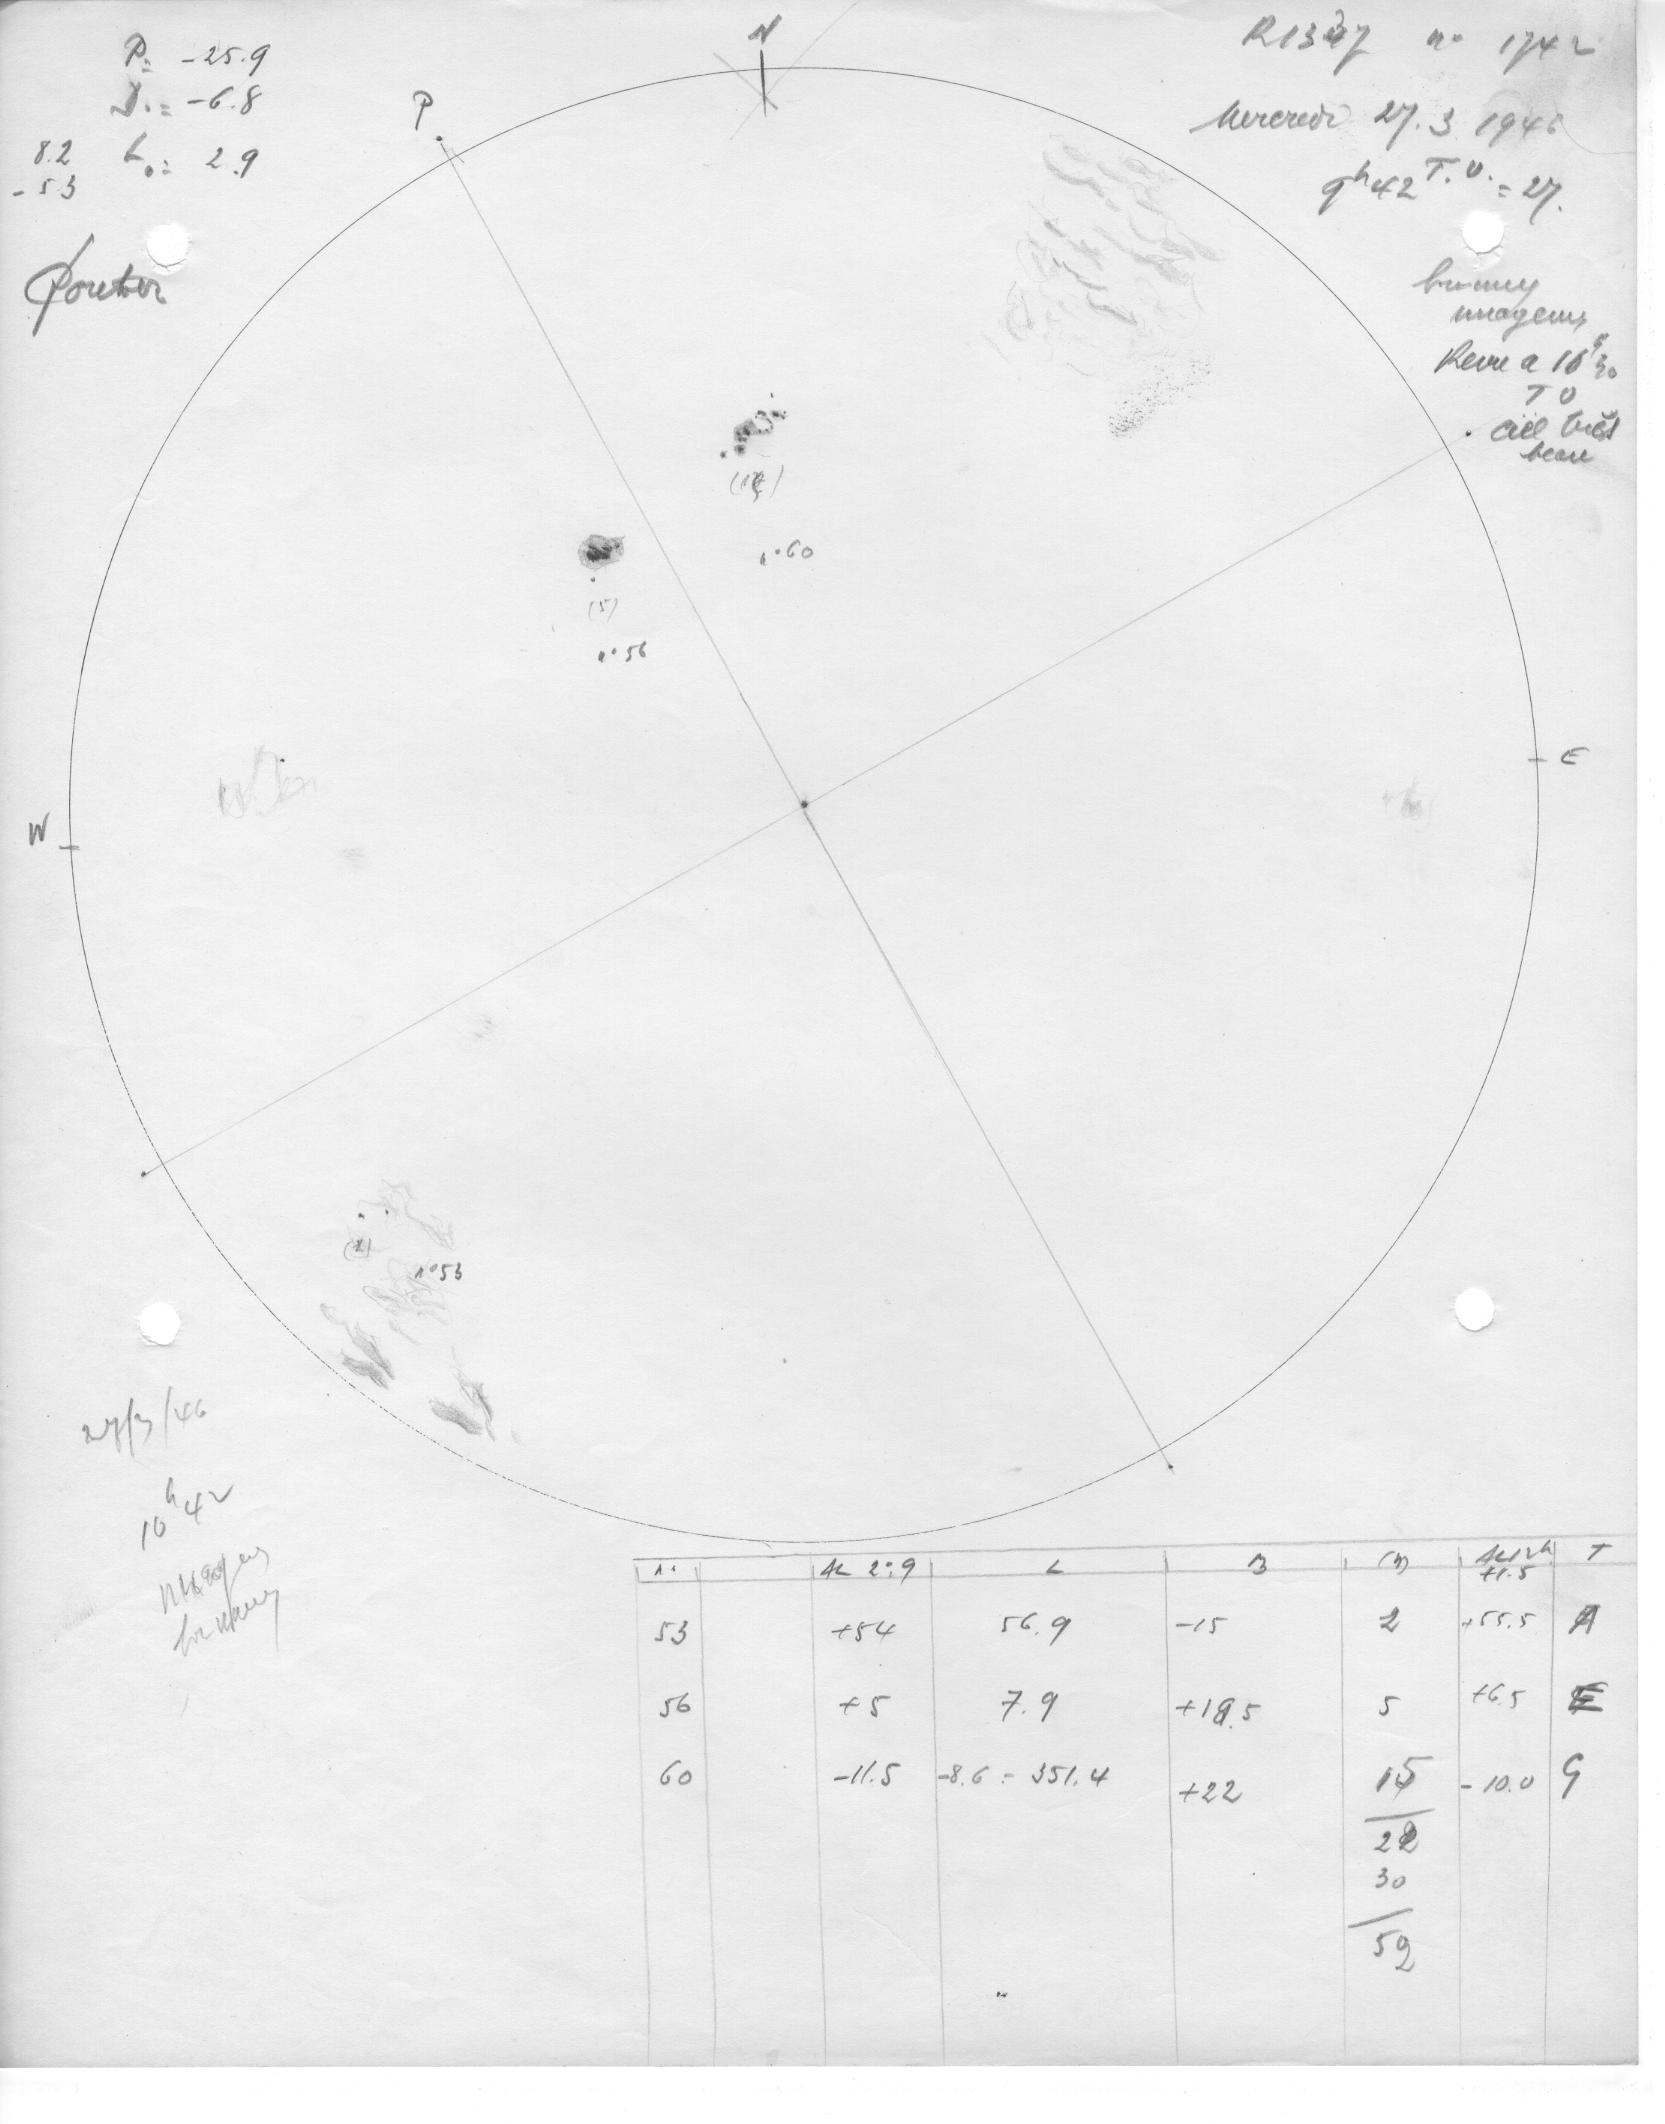 P = -25.9
D. = -6.8
L₀ = 2.9
8.2
- 53
N
P
R1337 n° 1742
Mercredi 27.3 1946
9h42 T.U. = 27.
brumeux
nuageux
Revu a 10h30
T U
ciel très
beau
n° 60
(5)
n° 56
E
W
(2)
n° 53
27/3/46
10h42
nuageux
brumeux
n° AL 2:9 L B (n) AL12h +1.5 T
53 +54 56.9 -15 2 +55.5 A
56 +5 7.9 +18.5 5 +6.5 E
60 -11.5 -8.6 = 351.4 +22 15 -10.0 G
22
30
52